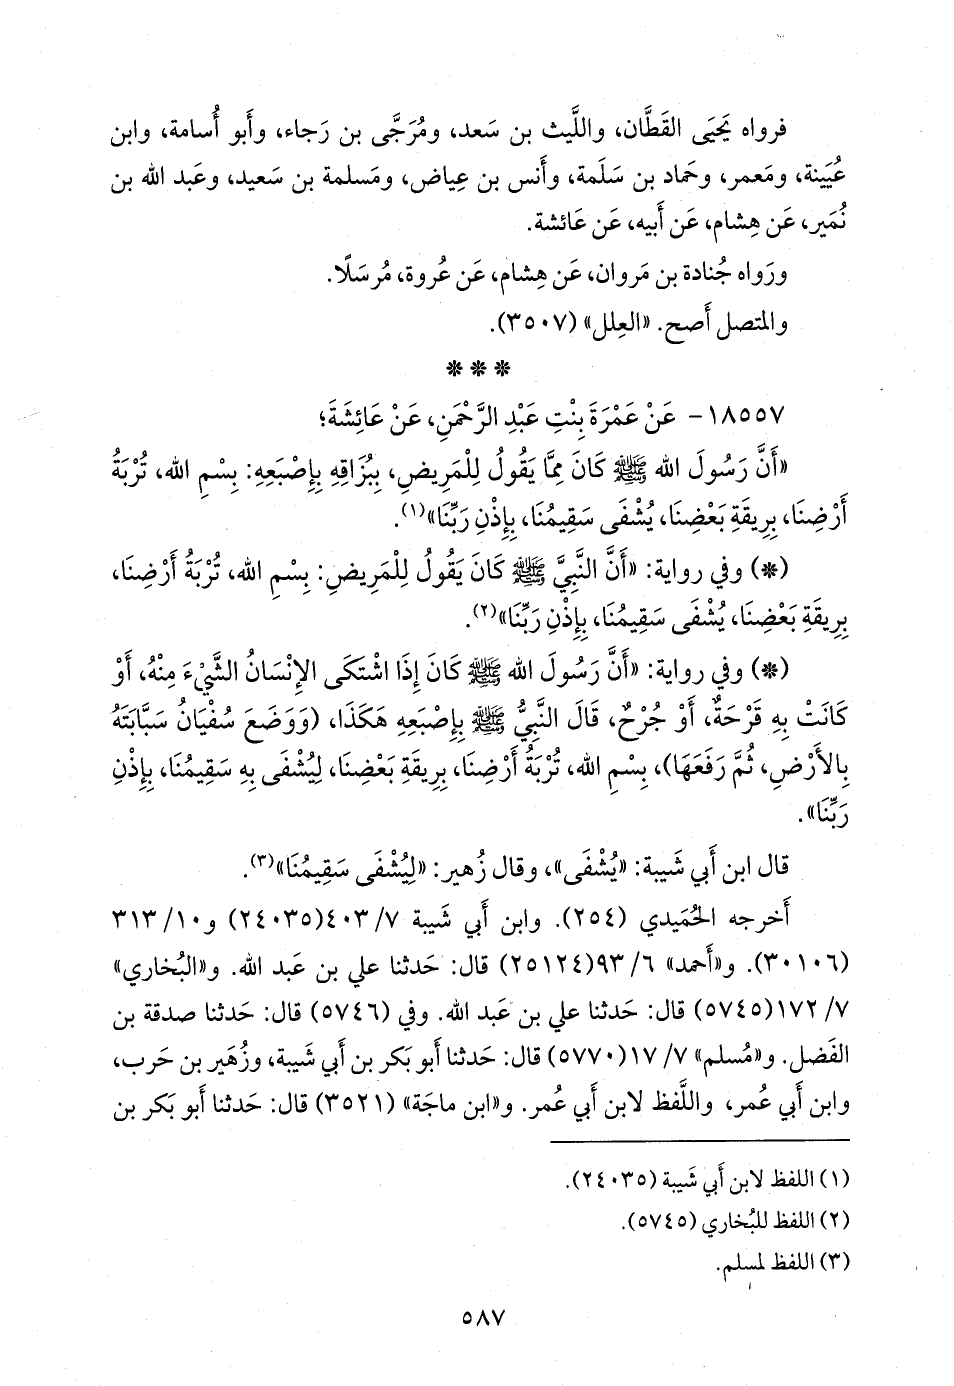 فرواه يَحيَى القَطَّان، واللَّيث بن سَعد، ومُرَجَّى بن رَجاء، وأَبو أُسامة، وابن
عُيَينة، ومَعمر، وحَماد بن سَلَمة، وأَنس بن عِياض، ومَسلمة بن سَعيد، وعَبد الله بن
نُمَير، عَن هِشام، عَن أَبيه، عَن عَائشة.
ورَواه جُنادة بن مَروان، عَن هِشام، عَن عُروة، مُرسَلًا.
والمتصل أَصح. «العِلل» (٣٥٠٧).
***
١٨٥٥٧- عَنْ عَمْرَةَ بِنْتِ عَبْدِ الرَّحْمَنِ، عَنْ عَائِشَةَ؛
«أَنَّ رَسُولَ الله ﷺ كَانَ مِمَّا يَقُولُ لِلْمَرِيضِ، بِبُزَاقِهِ بِإِصْبَعِهِ: بِسْمِ الله، تُرْبَةُ
أَرْضِنَا، بِرِيقَةِ بَعْضِنَا، يُشْفَى سَقِيمُنَا، بِإِذْنِ رَبِّنَا»(١).
(*) وفي رواية: «أَنَّ النَّبِيَّ ﷺ كَانَ يَقُولُ لِلْمَرِيضِ: بِسْمِ الله، تُرْبَةُ أَرْضِنَا،
بِرِيقَةِ بَعْضِنَا، يُشْفَى سَقِيمُنَا، بِإِذْنِ رَبِّنَا»(٢).
(*) وفي رواية: «أَنَّ رَسُولَ الله ﷺ كَانَ إِذَا اشْتَكَى الإِنْسَانُ الشَّيْءَ مِنْهُ، أَوْ
كَانَتْ بِهِ قَرْحَةٌ، أَوْ جُرْحٌ، قَالَ النَّبِيُّ ﷺ بِإِصْبَعِهِ هَكَذَا، (وَوَضَعَ سُفْيَانُ سَبَّابَتَهُ
بِالأَرْضِ، ثُمَّ رَفَعَهَا)، بِسْمِ الله، تُرْبَةُ أَرْضِنَا، بِرِيقَةِ بَعْضِنَا، لِيُشْفَى بِهِ سَقِيمُنَا، بِإِذْنِ
رَبِّنَا».
قال ابن أَبي شَيبة: «يُشْفَى»، وقال زُهير: «لِيُشْفَى سَقِيمُنَا»(٣).
أَخرجه الحُمَيدي (٢٥٤). وابن أَبي شَيبة ٧/ ٤٠٣(٢٤٠٣٥) و١٠/ ٣١٣
(٣٠١٠٦). و«أَحمد» ٦/ ٩٣(٢٥١٢٤) قال: حَدثنا علي بن عَبد الله. و«البُخاري»
٧/ ١٧٢(٥٧٤٥) قال: حَدثنا علي بن عَبد الله. وفي (٥٧٤٦) قال: حَدثنا صدقة بن
الفَضل. و«مُسلم» ٧/ ١٧(٥٧٧٠) قال: حَدثنا أَبو بَكر بن أَبي شَيبة، وزُهَير بن حَرب،
وابن أَبي عُمر، واللَّفظ لابن أَبي عُمر. و«ابن ماجَة» (٣٥٢١) قال: حَدثنا أَبو بَكر بن
(١) اللفظ لابن أَبي شَيبة (٢٤٠٣٥).
(٢) اللفظ للبُخاري (٥٧٤٥).
(٣) اللفظ لمسلم.
٥٨٧